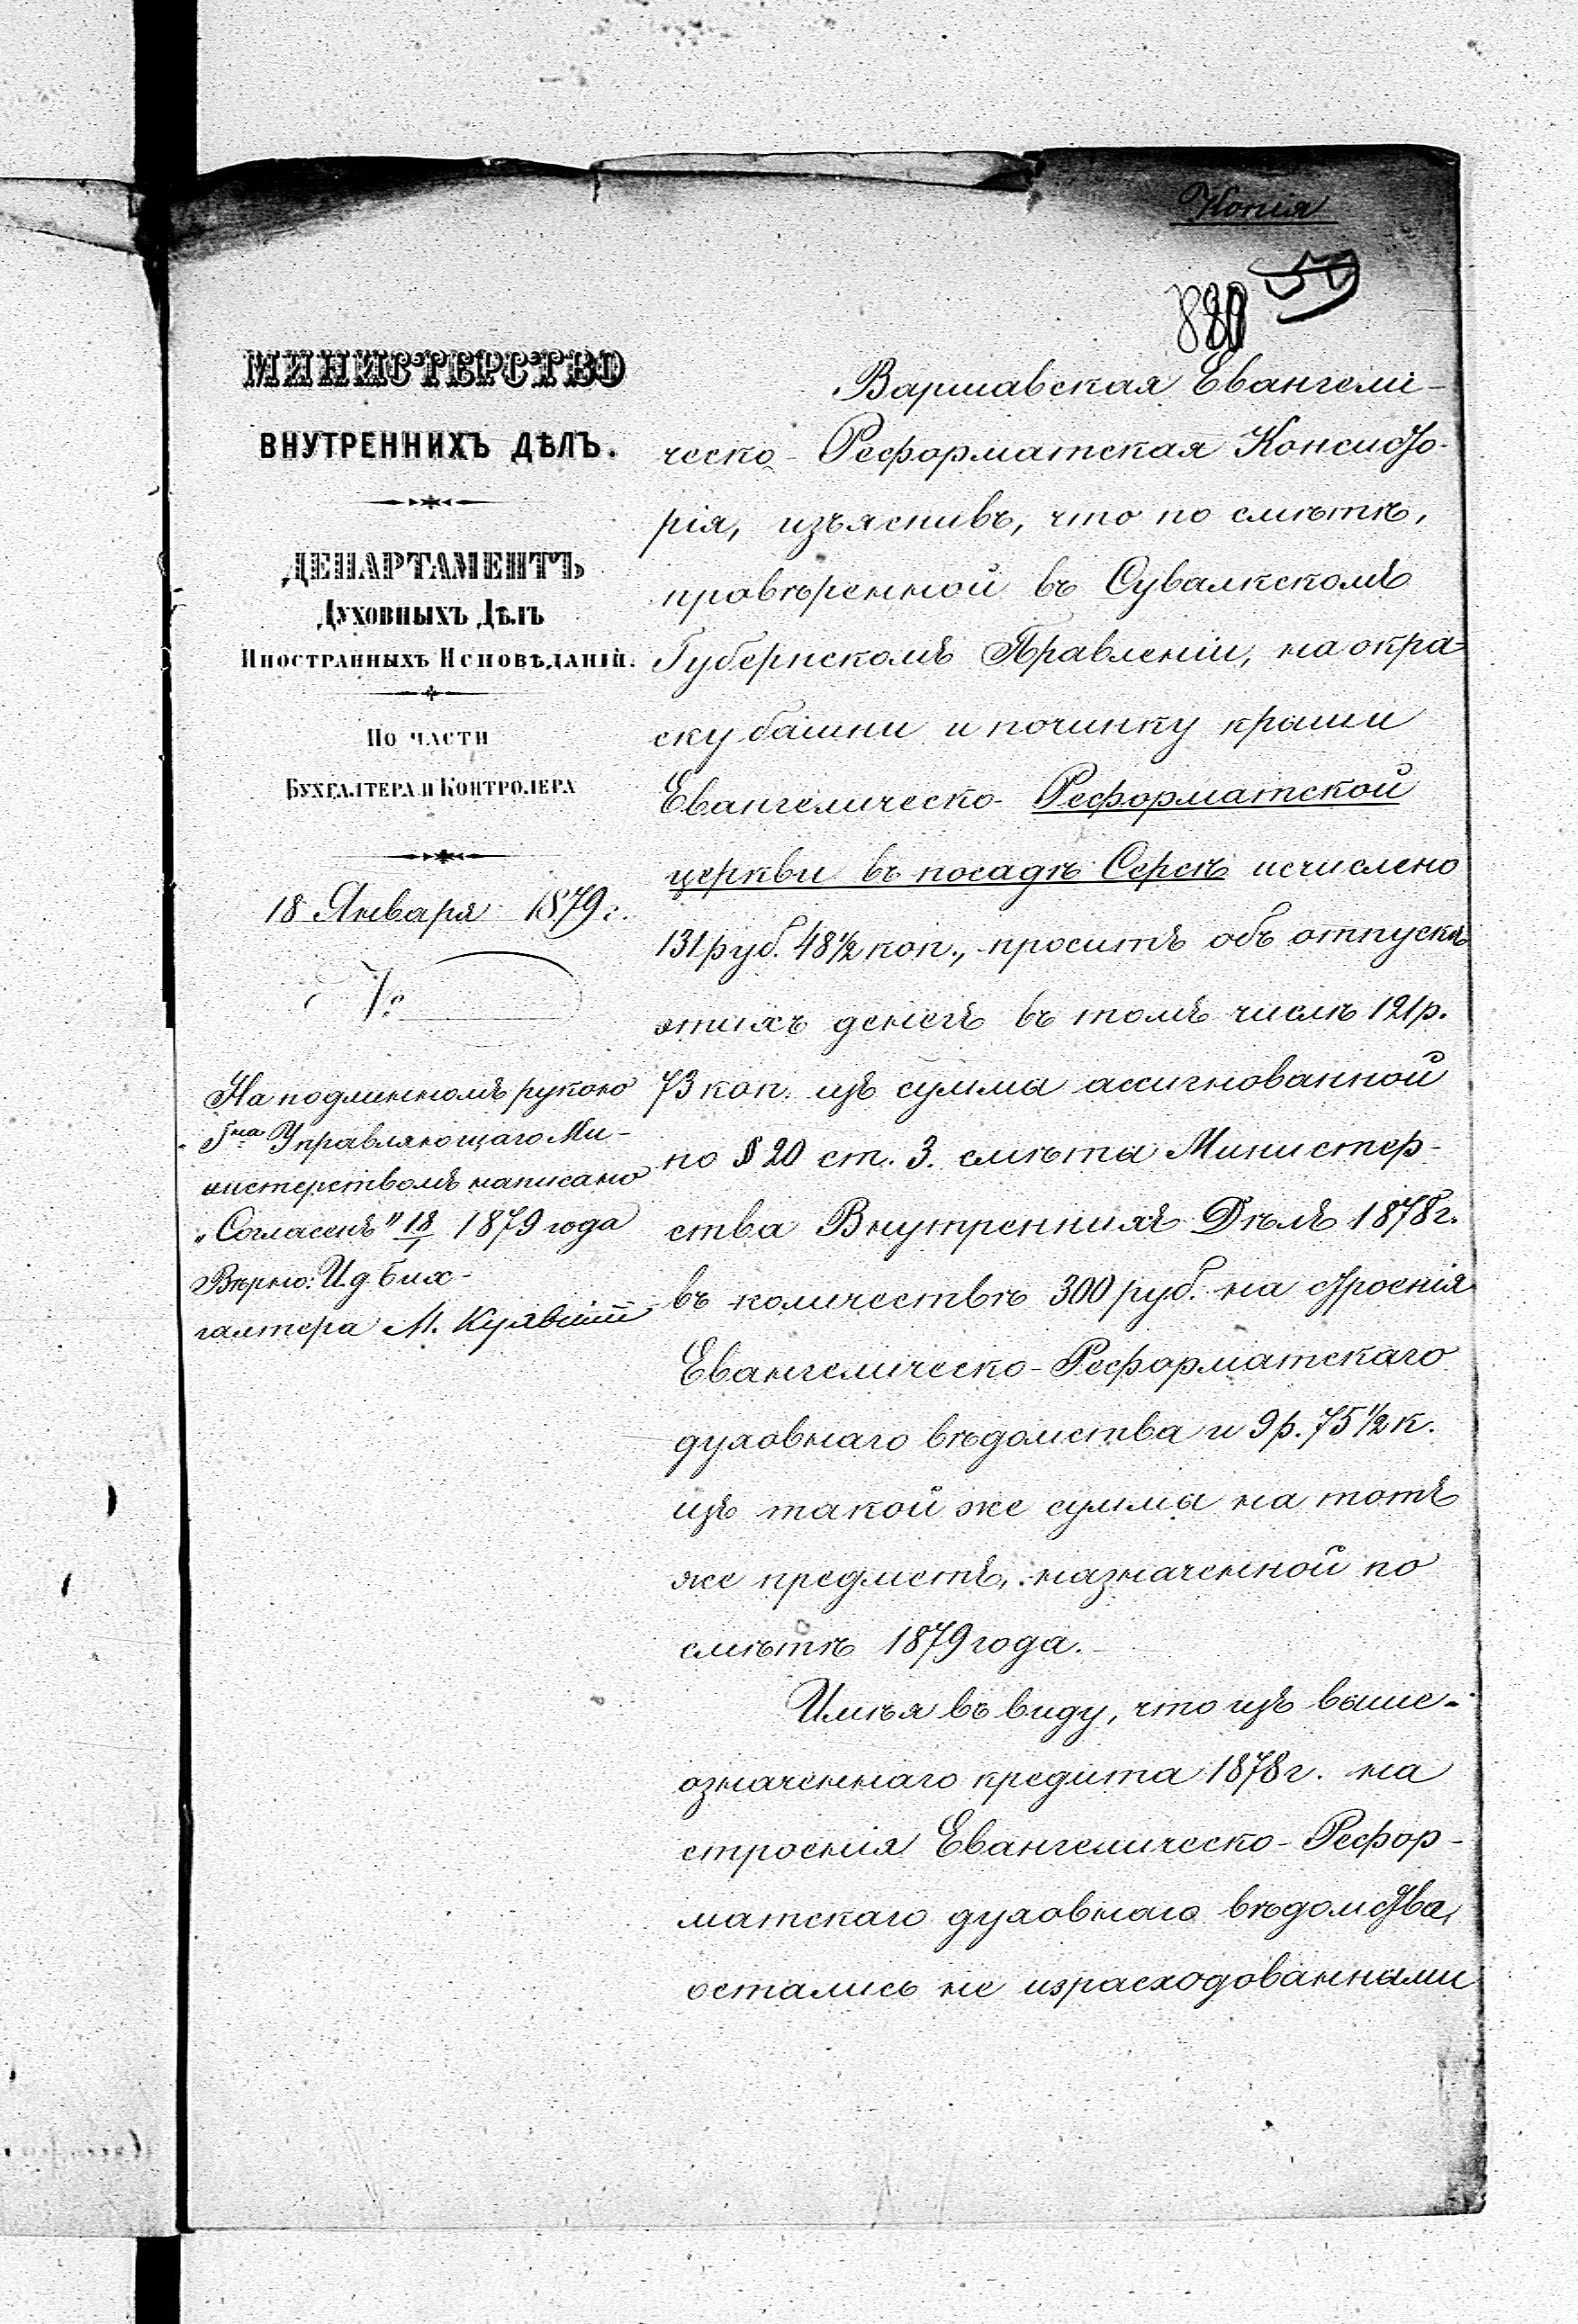 Копія
59
МИНИСТЕРСТВО
ВНУТРЕННИХЪ ДѢЛЪ.
ДЕПАРТАМЕНТЪ
Духовныхъ Дѣлъ
Иностранныхъ Исповѣданій.
По части
Бухгалтера и Контролера
18 Января 1879 г.
№
На подлинномъ рукою
Гна Управляющаго Ми-
нистерствомъ написано
„Согласенъ" 18/1 1879 года
Вѣрно: И.д. бух-
галтера М.
Варшавская Евангели-
ческо-Реформатская Консисто-
рія, изъяснивъ, что по смѣтѣ,
провѣренной въ Сувалкскомъ
Губернскомъ Правленіи, на окра-
ску башни и починку крыши
Евангелическо-Реформатской
церкви въ посадѣ Серѣѣ исчислено
131 руб. 48 1/2 коп., проситъ объ отпускѣ
этихъ денегъ въ томъ числѣ 121 р.
73 коп. изъ суммы ассигнованной
по § 20 ст. 3. смѣты Министер-
ства Внутреннихъ Дѣлъ 1878 г.
въ количествѣ 300 руб. на строенія
Евангелическо-Реформатскаго
духовнаго вѣдомства и 9 р. 75 1/2 к.
изъ такой же суммы на тотъ
же предметъ, назначенной по
смѣтѣ 1879 года.
Имѣя въ виду, что изъ выше-
означеннаго кредита 1878 г. на
строенія Евангелическо-Рефор-
матскаго духовнаго вѣдомства,
остались не израсходованными